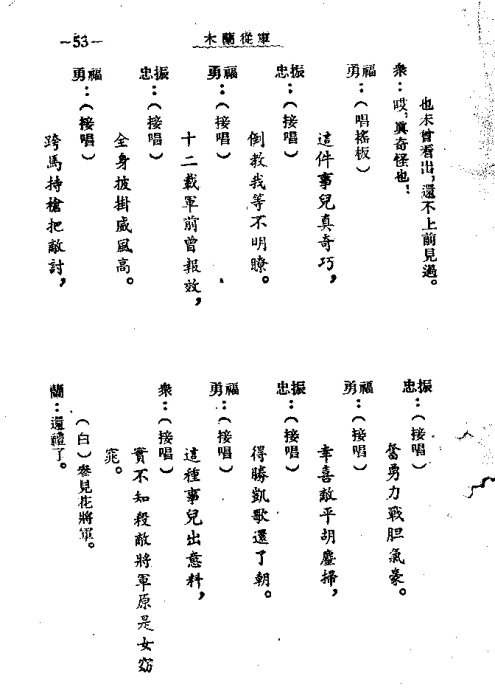 木蘭從軍
—53—
也未曾看出,還不上前見過。
衆:哎,眞奇怪也!
福勇:(唱搖板)
這件事兒真奇巧,
振忠:(接唱)
倒教我等不明瞭。
福勇:(接唱)
十二載軍前曾報效,
振忠:(接唱)
全身披掛威風高。
福勇:(接唱)
跨馬持槍把敵討,
振忠:(接唱)
奮勇力戰胆氣豪。
福勇:(接唱)
幸喜敵平胡塵掃,
振忠:(接唱)
得勝凱歌還了朝。
福勇:(接唱)
這種事兒出意料,
衆:(接唱)
實不知殺敵將軍原是女窈
窕。
(白)參見花將軍。
蘭:還禮了。